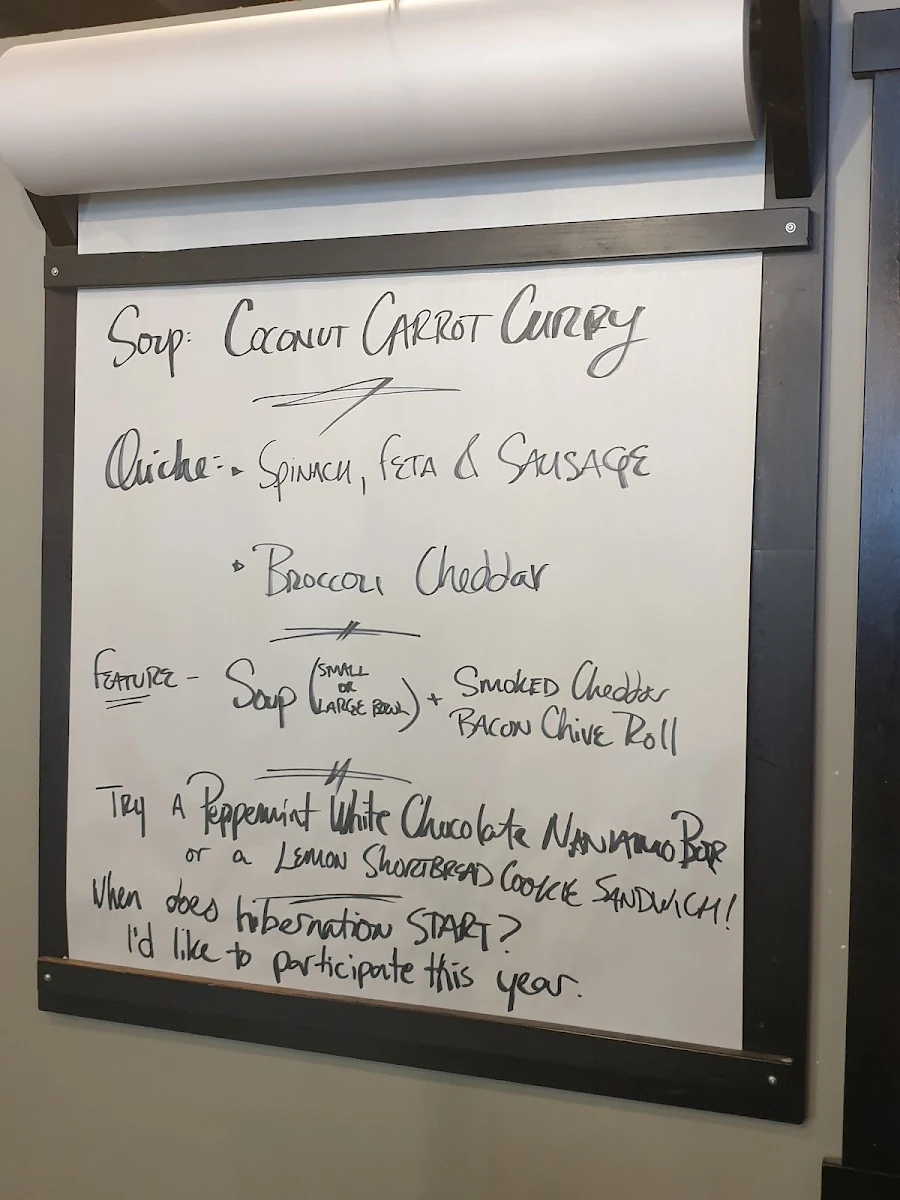 Soup: COCONUT CARROT CURRY
Quiche: • SPINACH, FETA & SAUSAGE
• BROCCOLI Cheddar
FEATURE - Soup (SMALL OR LARGE BOWL) + SMOKED Cheddar BACON Chive Roll
TRY A Peppermint White Chocolate NANIAMO BAR
or a LEMON SHORTBREAD COOKIE SANDWICH!
When does hibernation START?
I'd like to participate this year.